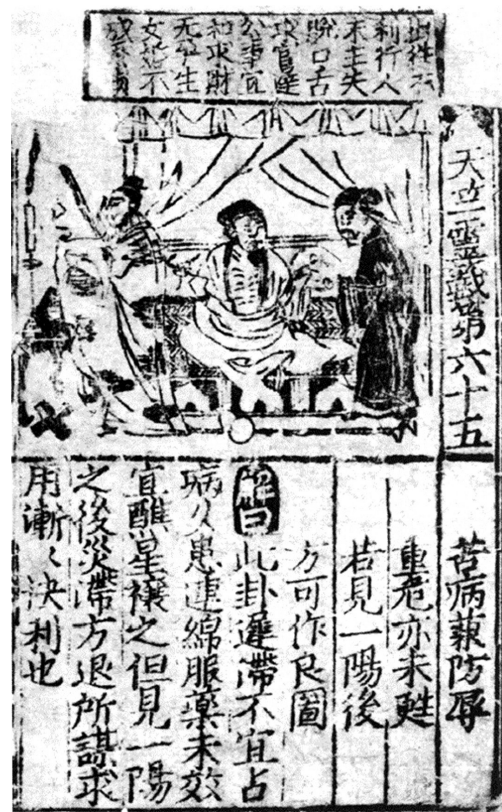 不
利行人
未至失
脫口舌
求官遲
公事宜
和求財
无孕生
女婚不
成
天竺靈籤第六十五
苦病兼防辱
危亦未甦
若見一陽後
方可作良圖
解曰此卦遲滯不宜占
病久患連綿服藥未效
宜醮星禳之但見一陽
之後災滯方退所謀求
用漸々決利也